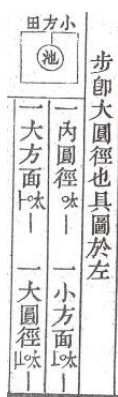 步卽大圓徑也具圖於左
小方田
池
一內圓徑太 一小方面太
一大方面太 一大圓徑太